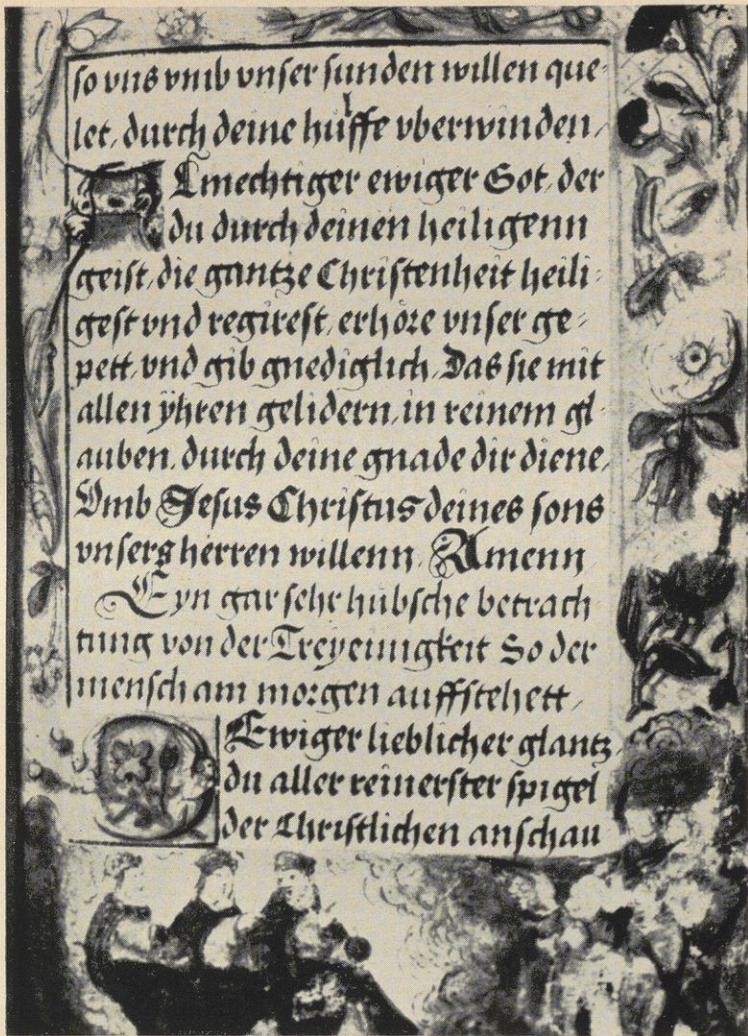 so vns vmb vnser sunden willen que-
let, durch deine hulffe vberwinden,
Almechtiger ewiger Got, der
du durch deinen heiligenn
geist, die gantze Christenheit heili-
gest vnd regirest, erhöre vnser ge-
pett, vnd gib gnediglich, Das sie mit
allen ÿhren gelidern, in reinem gl-
auben, durch deine gnade dir diene,
Vmb Jesus Christus deines sons
vnsers herren willenn, Amenn
Eyn gar sehr hubsche betrach
tung von der Treyeinigkeit So der
mensch am morgen auffstehett,
O Ewiger lieblicher glantz,
du aller reinerster spigel
der Christlichen anschau